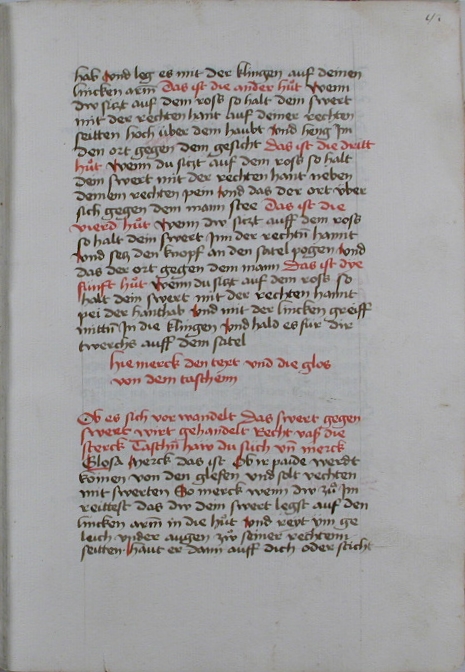 hab Vnd leg es mit der klingen auf deinen
lincken arm Das ist die ander hu̓t Wenn
dw sitzt auf dem ross so halt dein swert
mit der rechten hant auf deiner rechten
seitten hoch über dem haubt Vnd heng Im
den ort gegen dem gesicht Das ist die dritt
hu̓t Wenn du sitzt auf dem ross so halt
dein swert mit der rechten hant neben
deinem rechten pein Vnd das der ort vber
sich gegen dem mann stee Das ist die
vierd hu̓t Wenn dw sitzt auff dem ross
so halt dein swert Inn der rechtn̄ hannt
Vnd setz den knopf an den satel pogen Vnd
das der ort gegen dem man Das ist dye
fünfft hu̓t Wenn du sitzt auf dem ross so
halt dein swert mit der rechten hannt
pei der hanthab Vnd mit der lincken greiff
mittn̄ In die klingen Vnd hald es für dir
twerchs auff dem satel
hie merck den text vnd die glos
von dem taschenn
Ob es sich vor wandelt Das swert gegen
swert wirt gehandelt Recht vass die
sterck Taschn̄ haw du such vn̄ merck
Glosa Merck das ist Ob ir paide werdt
komen von den glefen vnd solt vechten
mit swerten So merck wenn dw zu̓ Im
reittest das dw dein swert legst auf den
lincken arm in die hu̓t Vnd reyt Im ge
leich vnder augen zw̓ seiner rechtenn
seitten haut er dann auff dich oder sticht